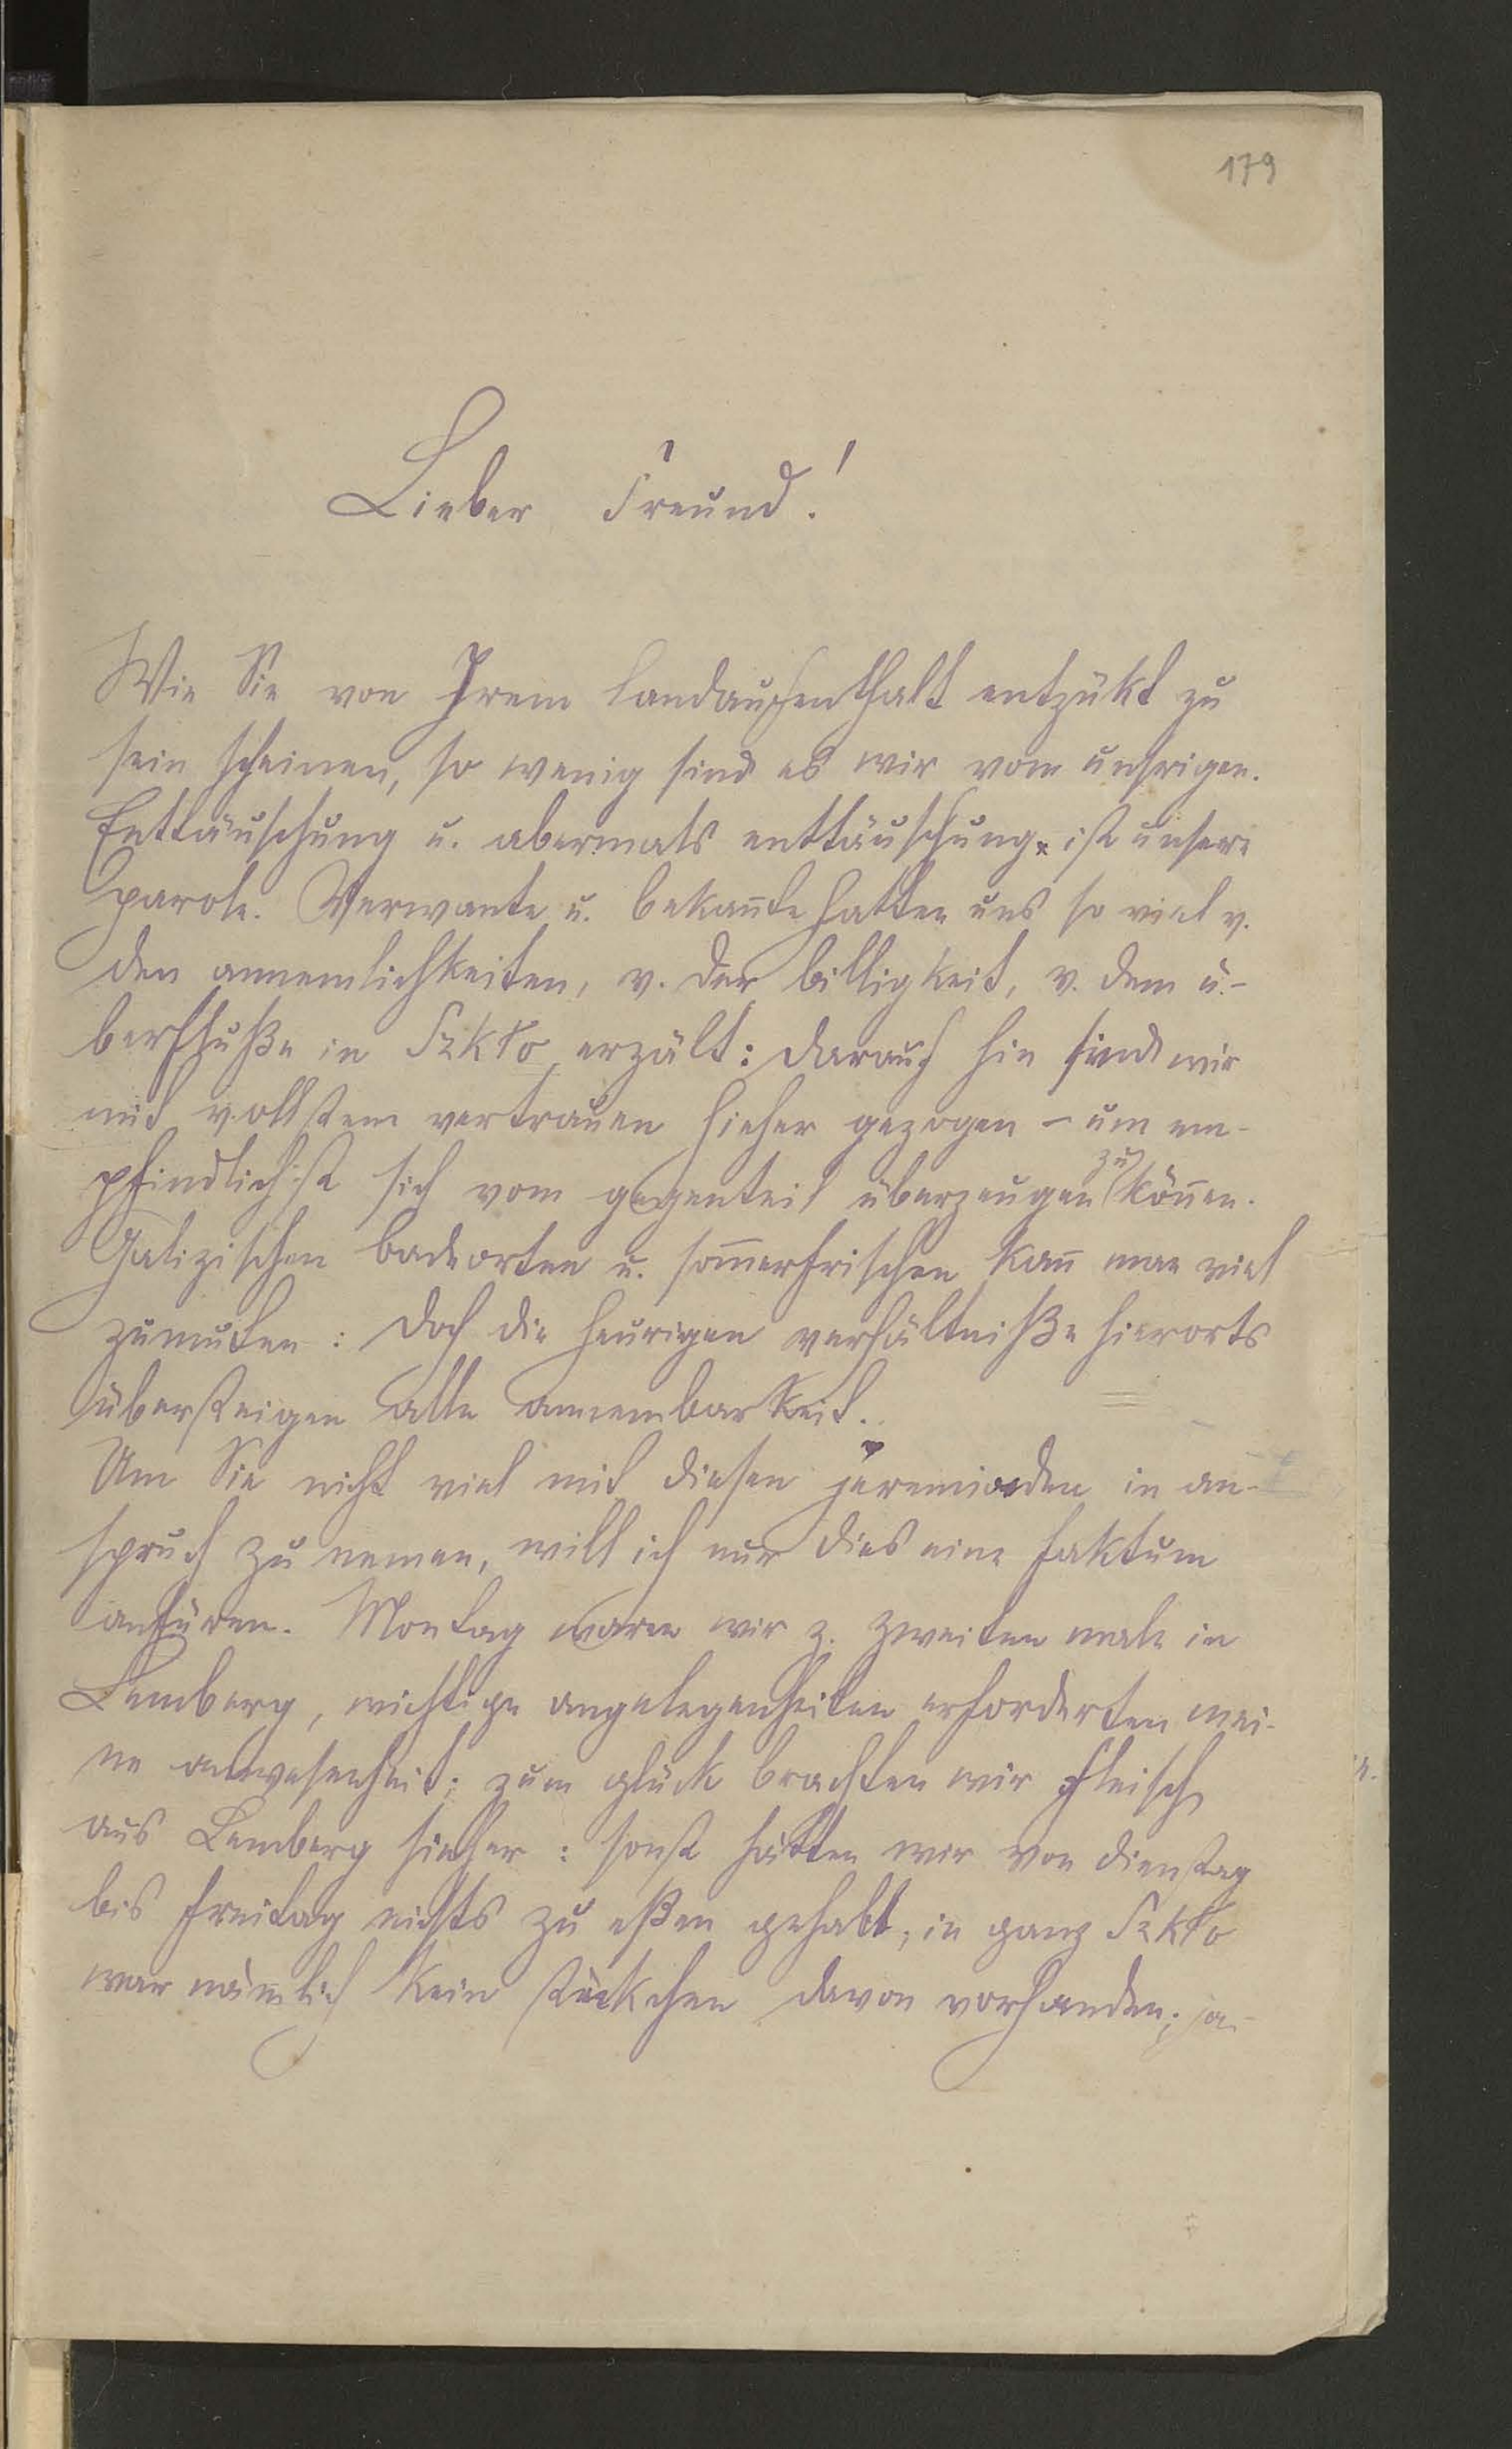 179
Lieber Freund!
Wie Sie von Irem landaufenthalt entzükt zu
sein scheinen, so wenig sind es wir vom unsrigen.
Enttäuschung u. abermals enttäuschung ist unsere
parole. Verwante u. bekannte hatten uns so viel v.
den annemlichkeiten, v. der billigkeit, v. dem ü-
berflusse in Szkło erzält: darauf hin sind wir
mit vollstem vertrauen hieher gezogen – um em-
pfindlichst sich vom gegenteil überzeugen zu können.
Galizischen badeorten u. sommerfrischen kann man viel
zumuten: doch die heurigen verhältniße hierorts
übersteigen alle annembarkeit.
Um Sie nicht viel mit diesen jeremiaden in an-
spruch zu nemen, will ich nur dies eine faktum
anfüren. Montag waren wir z. zweiten male in
Lemberg, wichtige angelegenheiten erforderten mei-
ne anwesenheit; zum glück brachten wir fleisch
aus Lemberg hieher: sonst hätten wir von dienstag
bis freitag nichts zu eßen gehabt; in ganz Szkło
war nämlich kein stückchen davon vorhanden; ja